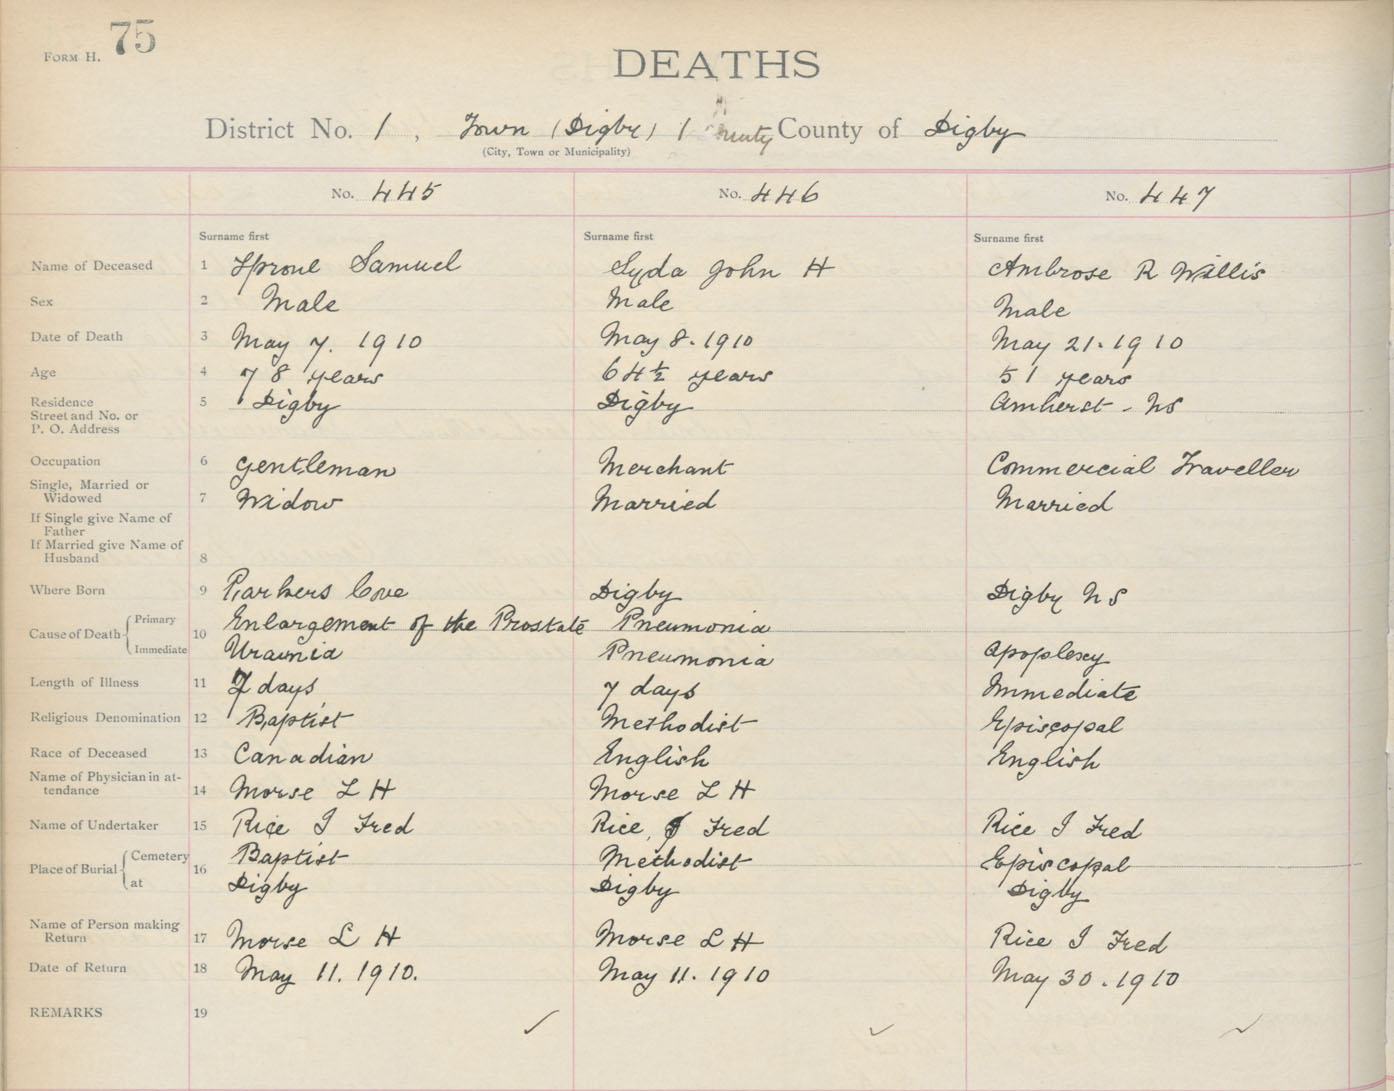 FORM H. 75
DEATHS
District No. 1, Town (Digby) County of Digby
(City, Town or Municipality)
No. 445 No. 446 No. 447
Surname first Surname first Surname first
Name of Deceased 1 Sproul Samuel Syda John H Ambrose R Willis
Sex 2 Male Male Male
Date of Death 3 May 7. 1910 May 8. 1910 May 21. 1910
Age 4 78 years 64½ years 51 years
Residence 5 Digby Digby Amherst - NS
Street and No. or
P. O. Address
Occupation 6 Gentleman Merchant Commercial Traveller
Single, Married or
Widowed 7 Widow Married Married
If Single give Name of
Father
If Married give Name of
Husband 8
Where Born 9 Parkers Cove Digby Digby NS
Cause of Death 10 Primary Enlargement of the Prostate Pneumonia
Immediate Uraenia Pneumonia Apoplexy
Length of Illness 11 7 days 7 days Immediate
Religious Denomination 12 Baptist Methodist Episcopal
Race of Deceased 13 Canadian English English
Name of Physician in at-
tendance 14 Morse L H Morse L H
Name of Undertaker 15 Rice I Fred Rice, J Fred Rice I Fred
Place of Burial 16 Cemetery Baptist Methodist Episcopal
at Digby Digby Digby
Name of Person making
Return 17 Morse L H Morse L H Rice I Fred
Date of Return 18 May 11. 1910. May 11. 1910 May 30. 1910
REMARKS 19